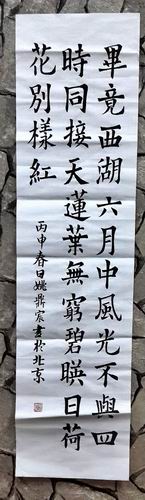 畢竟西湖六月中風光不與四
時同接天蓮葉無窮碧暎日荷
花別樣紅
丙申春日姚鼎宸書於北京